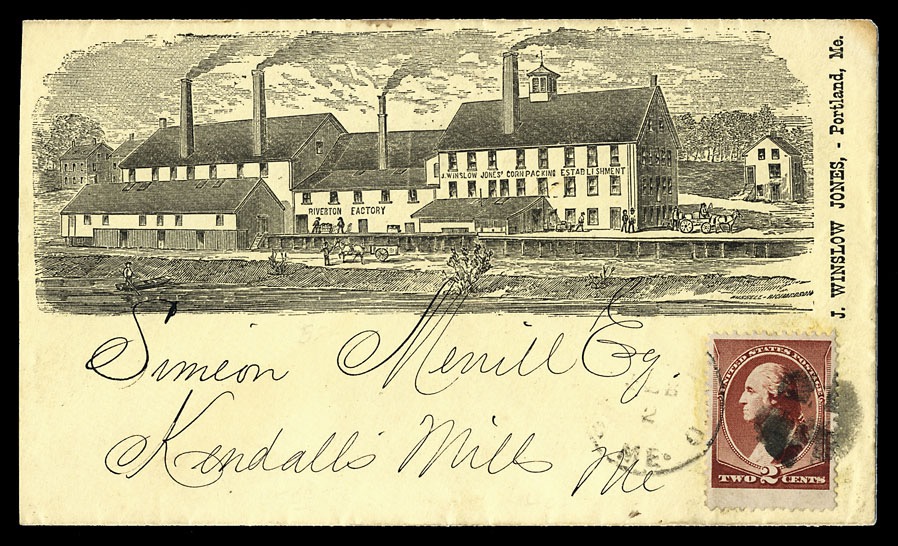 J. WINSLOW JONES' CORN PACKING ESTABLISHMENT
RIVERTON FACTORY
RUSSELL - RICHARDSON
J. WINSLOW JONES, - Portland, Me.
Simeon Merrill Esq.
Kendalls Mills Me
FEB
2
ME.
UNITED STATES POSTAGE
TWO 2 CENTS